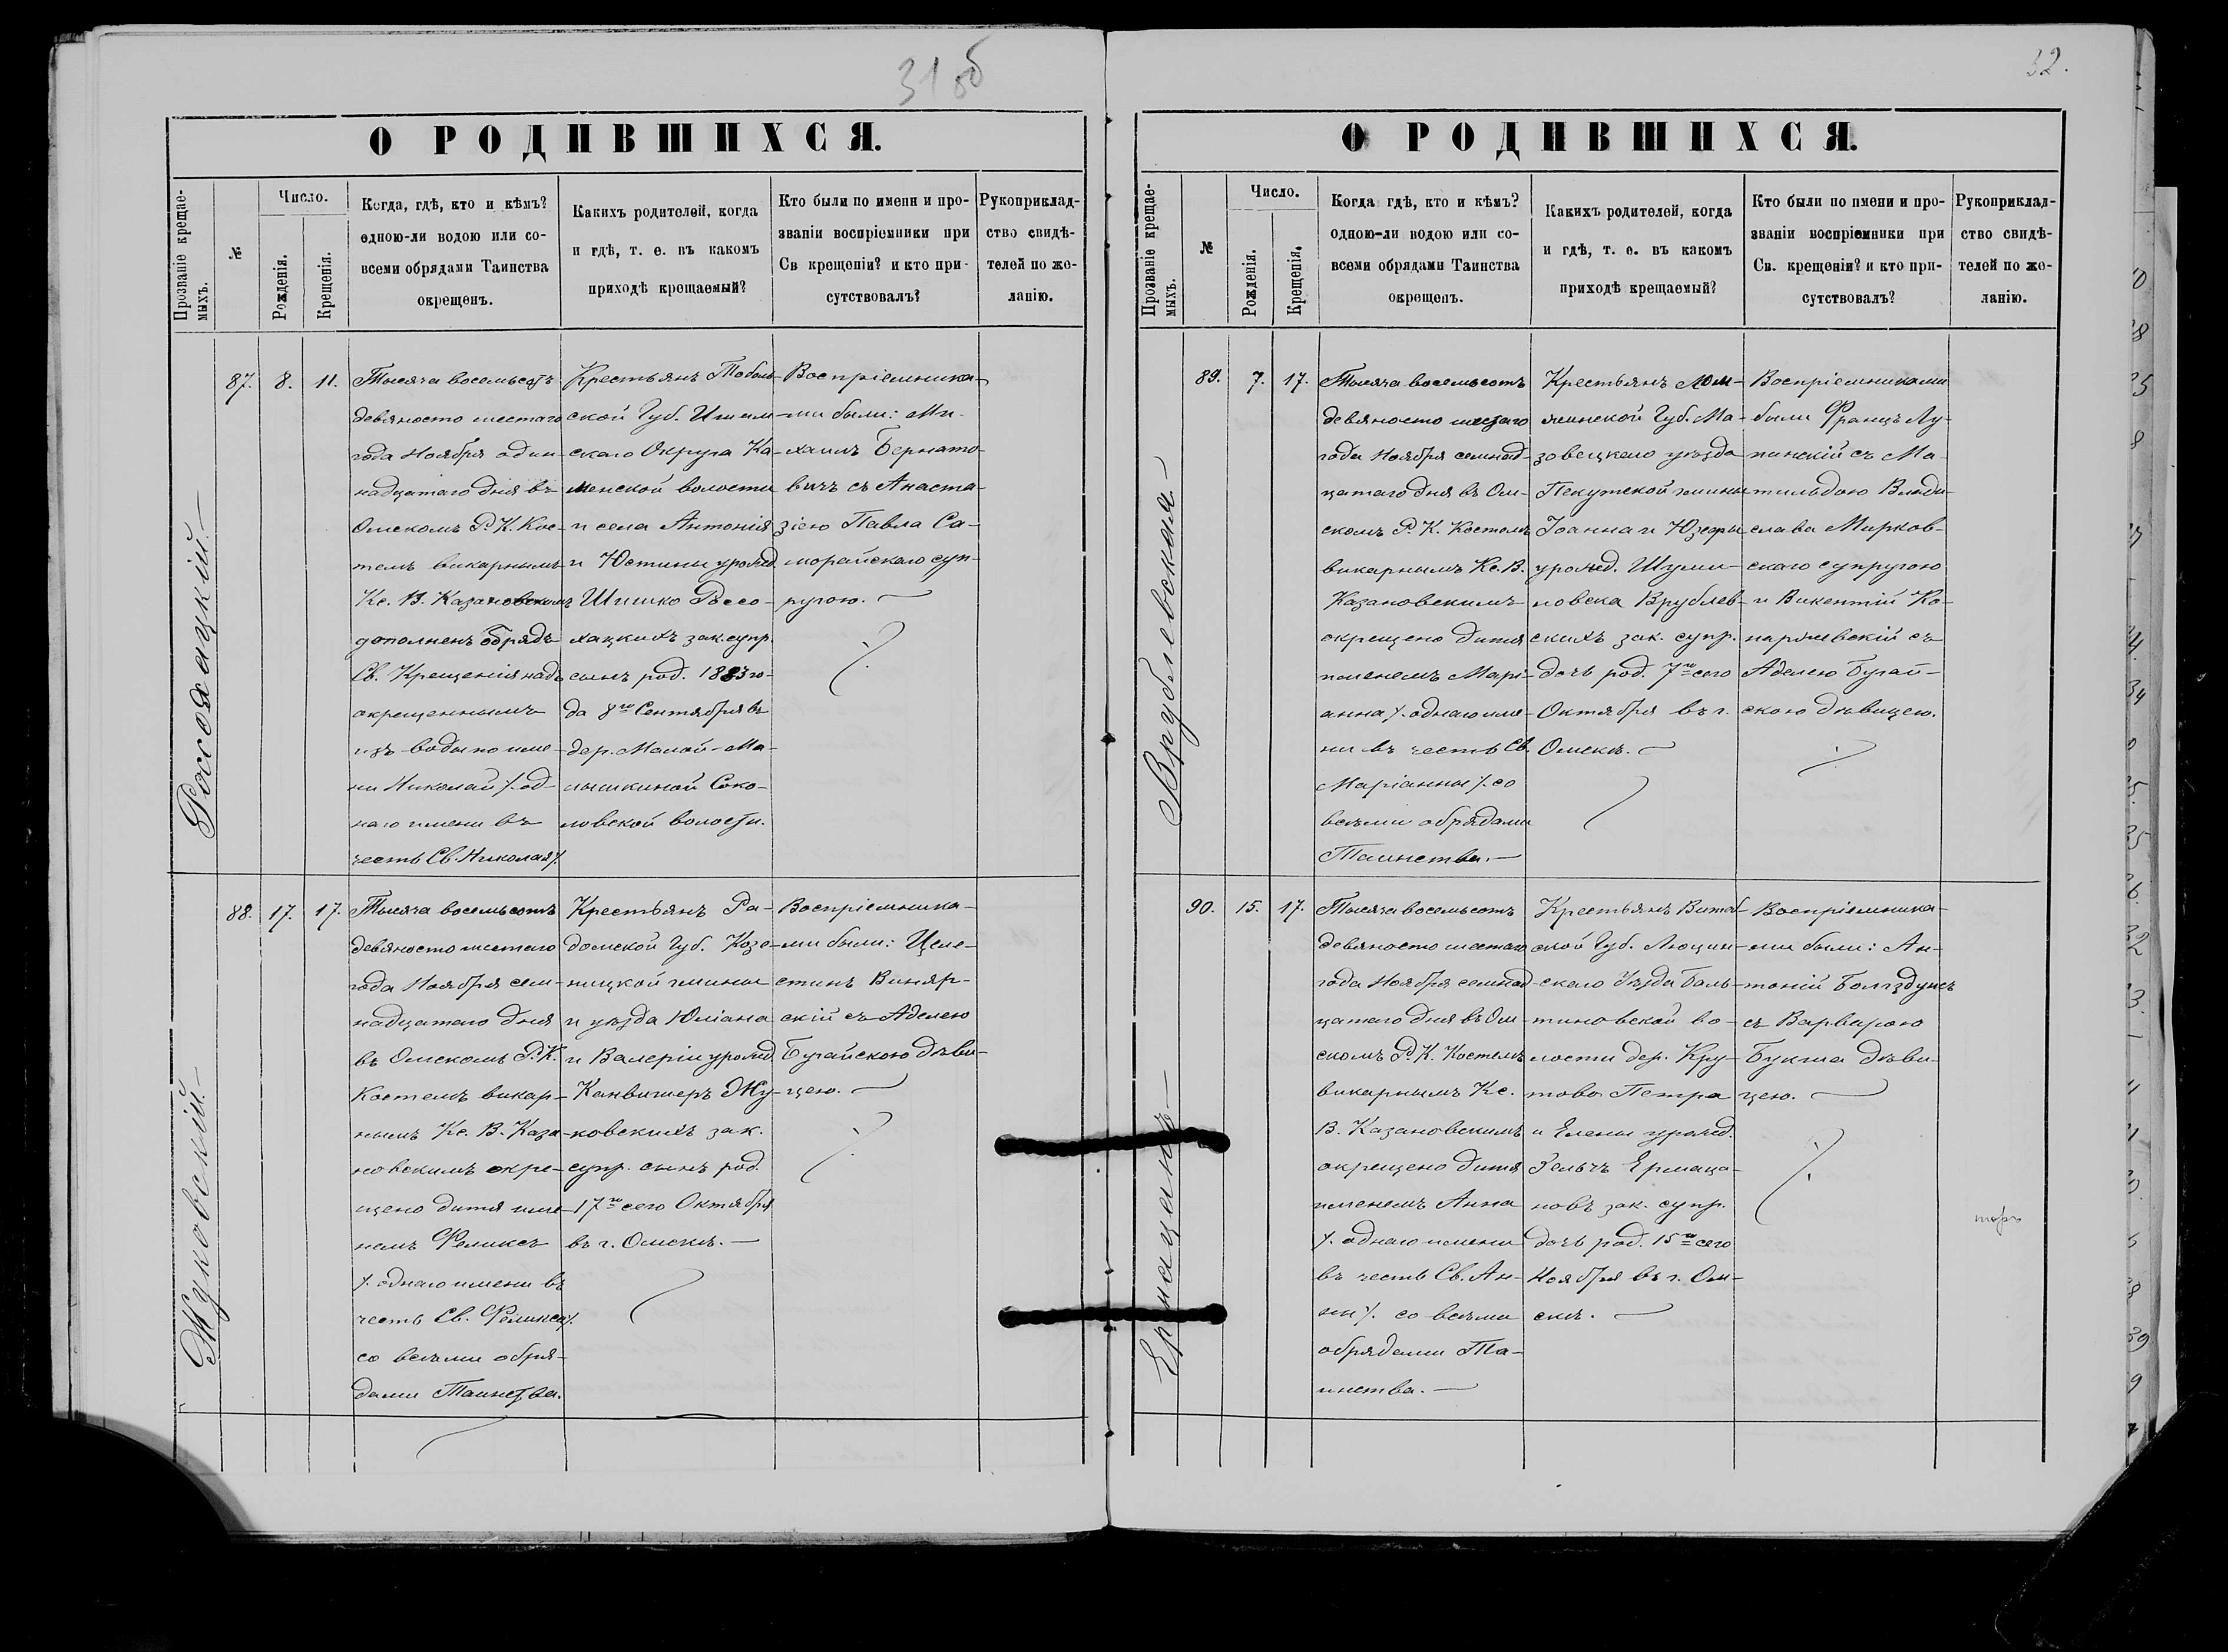 31 об
О РОДИВШИХСЯ.
Прозваніе крещае-
мыхъ.
№
Число.
Рожденія.
Крещенія.
Когда, гдѣ, кто и кѣмъ?
одною-ли водою или со-
всеми обрядами Таинства
окрещенъ.
Какихъ родителей, когда
и гдѣ, т. е. въ какомъ
приходѣ крещаемый?
Кто были по имени и про-
званіи воспріемники при
Св крещеніи? и кто при-
сутствовалъ?
Рукоприклад-
ство свидѣ-
телей по же-
ланію.
Россохацкій.—
87.
8.
11.
Тысяча восемьсотъ
девяносто шестаго
года Ноября один-
надцатаго дня въ
Омскомъ Р. К. Кос-
телѣ викарнымъ
Кс. В. Казановскимъ
дополненъ обрядъ
Св. Крещенія надъ
окрещеннымъ
изъ воды по име-
ни Николай /. од-
наго имени въ
честь Св. Николая /.
Крестьянъ Тоболь-
ской Губ. Ишим-
скаго Округа Ка-
менской волости
и села Антонія
и Юстины урожд.
Шишко Россо-
хацкихъ зак. супр.
сынъ род. 1883 го-
да 8го Сентября въ
дер. Малой-Ма-
лышкиной Соко-
ловской волости.
Воспріемника-
ми были: Ми-
хаилъ Бернато-
вичъ съ Анаста-
зіею Павла Са-
морайскаго суп-
ругою. —
Жуковскій.—
88.
17.
17.
Тысяча восемьсотъ
девяносто шестаго
года Ноября сем-
надцатаго дня
въ Омскомъ Р. К.
Костелѣ викар-
нымъ Кс. В. Каза-
новскимъ окре-
щено дитя име-
немъ Феликсъ
/. однаго имени въ
честь Св. Феликса /.
со всѣми обря-
дами Таинства.
Крестьянъ Ра-
домской Губ. Козе-
ницкой гмины
и уѣзда Юліана
и Валеріи урожд.
Канвишеръ Жу-
ковскихъ зак.
супр. сынъ род.
17го сего Октября
въ г. Омскѣ. —
Воспріемника-
ми были: Целе-
стинъ Виняр-
скій съ Аделею
Бугайскою дѣви-
цею. —
32.
О РОДИВШИХСЯ.
Прозваніе крещае-
мыхъ.
№
Число.
Рожденія.
Крещенія.
Когда гдѣ, кто и кѣмъ?
одною-ли водою или со-
всеми обрядами Таинства
окрещенъ.
Какихъ родителей, когда
и гдѣ, т. е. въ какомъ
приходѣ крещаемый?
Кто были по имени и про-
званіи воспріемники при
Св. крещеніи? и кто при-
сутствовалъ?
Рукоприклад-
ство свидѣ-
телей по же-
ланію.
Врублевская—
89.
7.
17.
Тысяча восемьсотъ
девяносто шестаго
года Ноября семнад-
цатаго дня въ Ом-
скомъ Р. К. Костелѣ
викарнымъ Кс. В.
Казановскимъ
окрещено дитя
именемъ Марі-
анна /. однаго име-
ни въ честь Св.
Маріанны /. со
всѣми обрядами
Таинства. —
Крестьянъ Лом-
жинской Губ. Ма-
зовецкаго уѣзда
Пекутской гмины
Іоанна и Юзефы
урожд. Шуми-
новска Врублев-
скихъ зак. супр.
дочь род. 7го сего
Октября въ г.
Омскѣ. —
Воспріемниками
были Францъ Лу-
пинскій съ Ма-
тильдою Влади-
слава Мирков-
скаго супругою
и Викентій Ко-
паржевскій съ
Аделею Бугай-
скою дѣвицею.
90.
15.
17.
Тысяча восемьсотъ
девяносто шестаго
года Ноября семнад-
цатаго дня въ Ом-
скомъ Р. К. Костелѣ
викарнымъ Кс.
В. Казановскимъ
окрещено дитя
именемъ Анна
/. однаго имени
въ честь Св. Ан-
ны /. со всѣми
обрядами Та-
инства. —
Крестьянъ Витеб-
ской Губ. Люцин-
скаго Уѣзда Баль-
тиновской во-
лости дер. Кру-
тово Петра
и Елены урожд.
супр.
дочь род. 15го сего
Ноября въ г. Ом-
скѣ. —
Воспріемника-
ми были: Ан-
тоній
съ Варварою
Букша дѣви-
цею. —